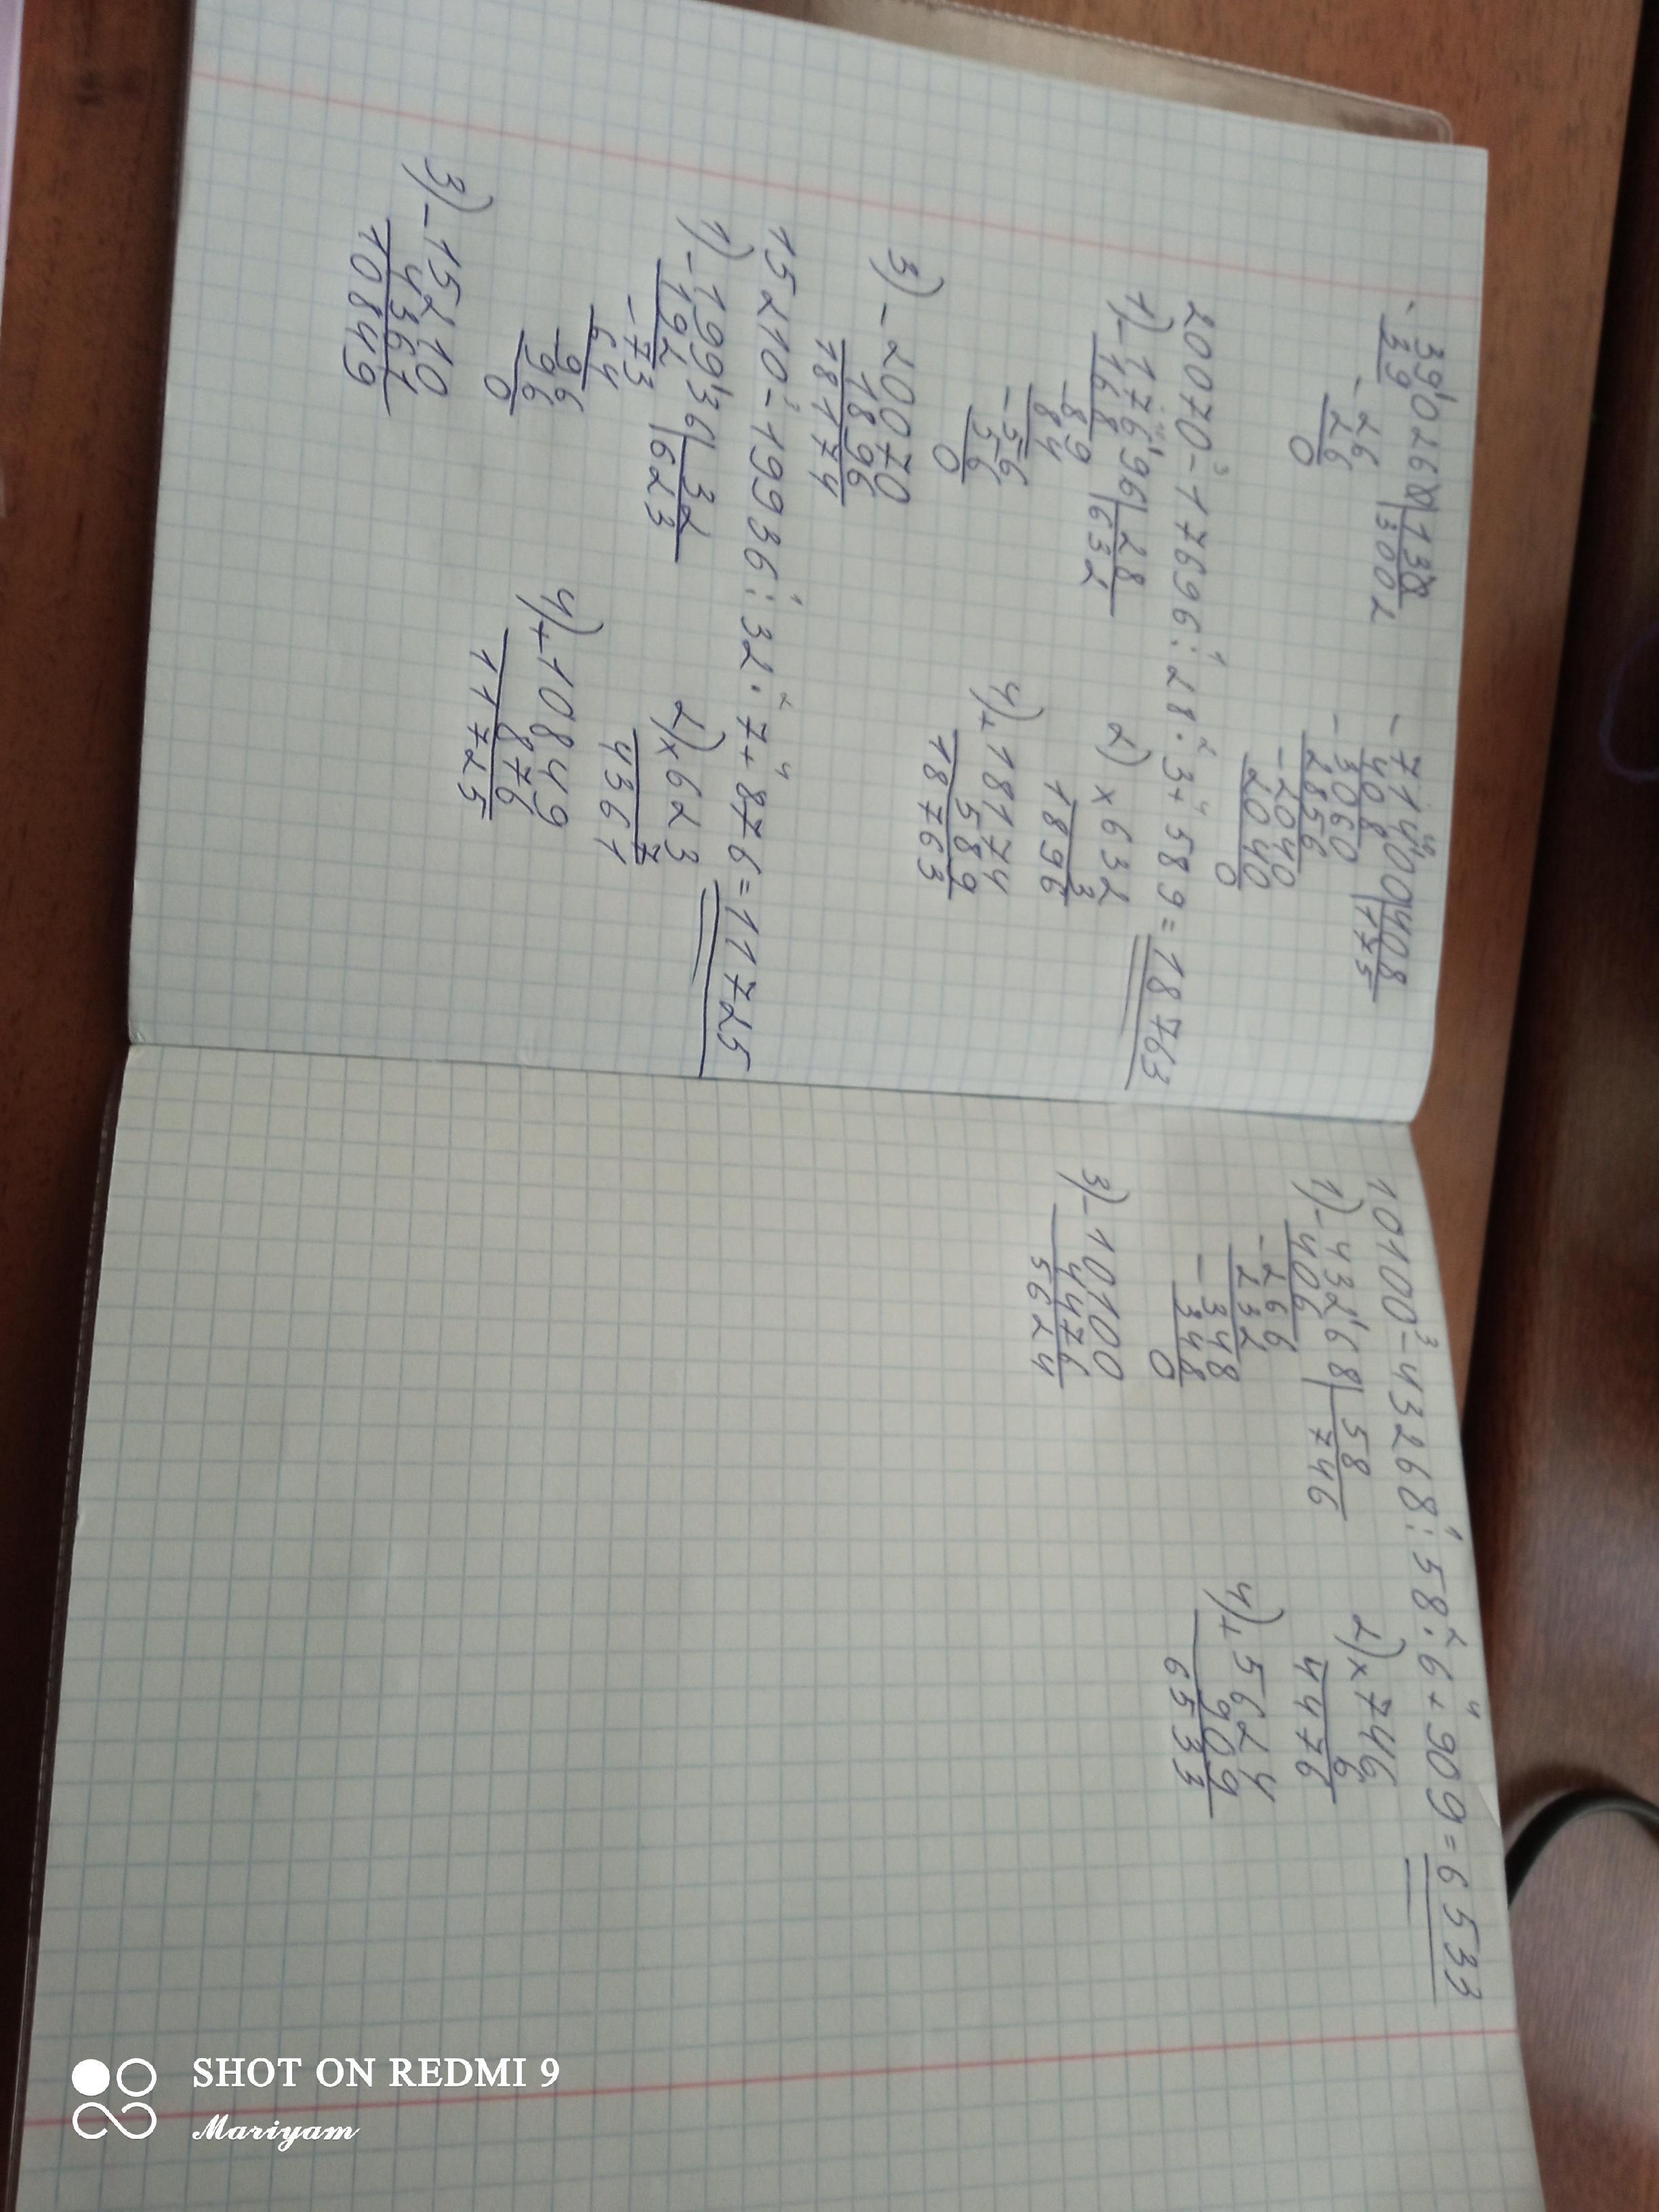 -39'0260|130
39 3002
-26
26
0
-714'00|408
408 175
-3060
2856
-2040
2040
0
20070-³17696:¹28·²3+⁴589=18763
1)-176'96|28
168 632
-89
84
-56
56
0
2)×632
3
1896
3)-20070
1896
18174
4)+18174
589
18763
15210-³19936:¹32·²7+⁴876=11725
1)-199'36|32
192 623
-73
64
96
96
0
2)×623
7
4361
3)-15210
4361
10849
4)+10849
876
11725
10100-³43268:¹58·²6+⁴909=6533
1)-432'68|58
406 746
-266
232
-348
348
0
2)×746
6
4476
3)-10100
4476
5624
4)+5624
909
6533
SHOT ON REDMI 9
Mariyam